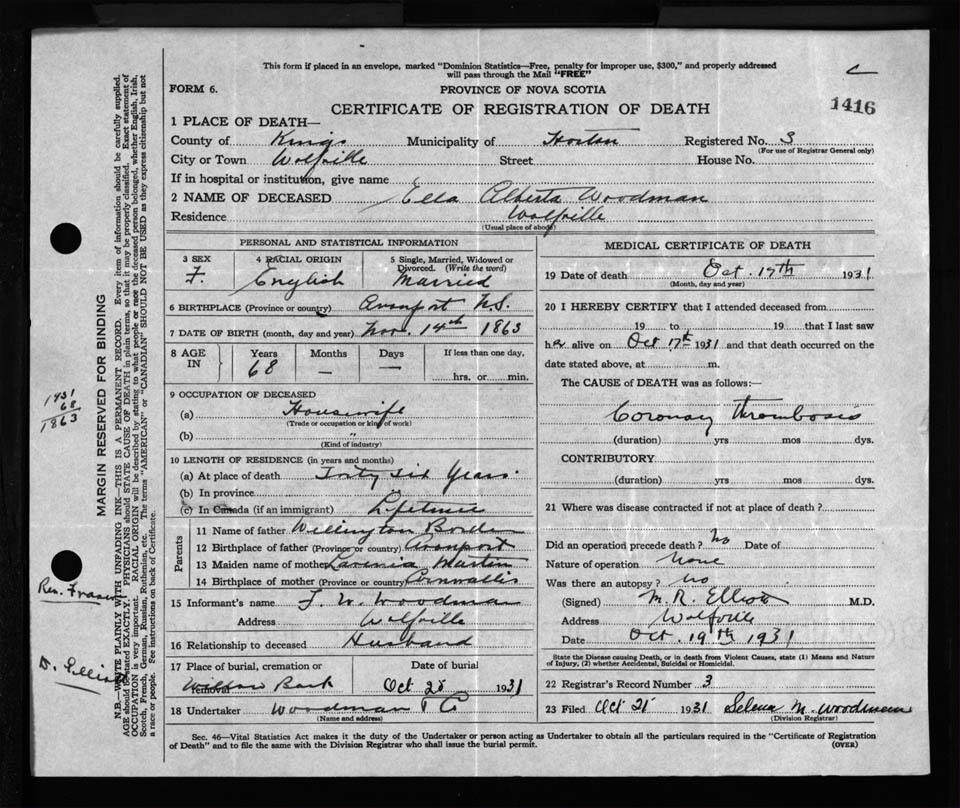 This form if placed in an envelope, marked "Dominion Statistics—Free, penalty for improper use, $300," and properly addressed
will pass through the Mail "FREE"
C
FORM 6.
PROVINCE OF NOVA SCOTIA
CERTIFICATE OF REGISTRATION OF DEATH
1416
1 PLACE OF DEATH—
County of Kings Municipality of Horton Registered No. 3
(For use of Registrar General only)
City or Town Wolfville Street House No.
If in hospital or institution, give name
2 NAME OF DECEASED Ella Alberta Woodman
Residence Wolfville
(Usual place of abode)
PERSONAL AND STATISTICAL INFORMATION
3 SEX 4 RACIAL ORIGIN 5 Single, Married, Widowed or
Divorced. (Write the word)
F. English Married
6 BIRTHPLACE (Province or country) Avonport N.S.
7 DATE OF BIRTH (month, day and year) Nov. 14th 1863
8 AGE IN Years Months Days If less than one day,
68 — — hrs. or min.
9 OCCUPATION OF DECEASED
(a) Housewife
(Trade or occupation or kind of work)
(b) "
(Kind of industry)
10 LENGTH OF RESIDENCE (in years and months)
(a) At place of death Forty six Years.
(b) In province
(c) In Canada (if an immigrant) Lifetime
Parents
11 Name of father Wellington Borden
12 Birthplace of father (Province or country) Avonport
13 Maiden name of mother Lavenia Martin
14 Birthplace of mother (Province or country) Cornwallis
15 Informant's name F. W. Woodman
Address Wolfville
16 Relationship to deceased Husband
17 Place of burial, cremation or Date of burial
removal Willow Bank Oct 20 1931
18 Undertaker Woodman
(Name and address)
MEDICAL CERTIFICATE OF DEATH
19 Date of death Oct. 17th 1931
(Month, day and year)
20 I HEREBY CERTIFY that I attended deceased from
19 to 19 that I last saw
her alive on Oct 17th 1931 and that death occurred on the
date stated above, at m.
The CAUSE of DEATH was as follows:—
Coronary Thrombosis
(duration) yrs mos dys.
CONTRIBUTORY
(duration) yrs mos dys.
21 Where was disease contracted if not at place of death?
Did an operation precede death? No Date of
Nature of operation None
Was there an autopsy? No
(Signed) M. R. Elliott M.D.
Address Wolfville
Date Oct. 19th 1931
State the Disease causing Death, or in death from Violent Causes, state (1) Means and
Nature of Injury, (2) whether Accidental, Suicidal or Homicidal.
22 Registrar's Record Number 3
23 Filed Oct 21 1931 Selena M. Woodman
(Division Registrar)
Sec. 46—Vital Statistics Act makes it the duty of the Undertaker or person acting as Undertaker to obtain all the particulars required in the "Certificate of Registration
of Death" and to file the same with the Division Registrar who shall issue the burial permit.
(OVER)
MARGIN RESERVED FOR BINDING
N.B.—WRITE PLAINLY WITH UNFADING INK—THIS IS A PERMANENT RECORD. Every item of information should be carefully supplied.
AGE should be stated EXACTLY. PHYSICIANS should STATE CAUSE OF DEATH in plain terms, so that it may be properly classified. Exact statement of
OCCUPATION is very important. RACIAL ORIGIN will be described by stating to what people or race the deceased person belonged, whether English, Irish,
Scotch, French, German, Russian, Ruthenian, etc. The terms "AMERICAN" or "CANADIAN" SHOULD NOT BE USED as they express citizenship but not
a race or people. See instructions on back of Certificate.
1931
68
1863
Rev. Fraser